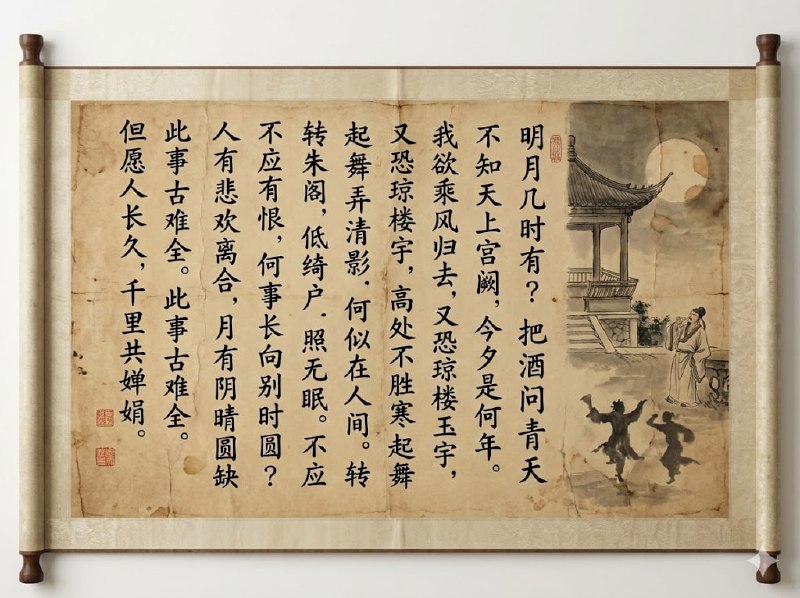 明月几时有？把酒问青天
不知天上宫阙，今夕是何年。
我欲乘风归去，又恐琼楼玉宇，
又恐琼楼宇，高处不胜寒起舞
起舞弄清影．何似在人间。转
转朱阁，低绮户．照无眠。不应
不应有恨，何事长向别时圆？
人有悲欢离合，月有阴晴圆缺
此事古难全。此事古难全。
但愿人长久，千里共婵娟。